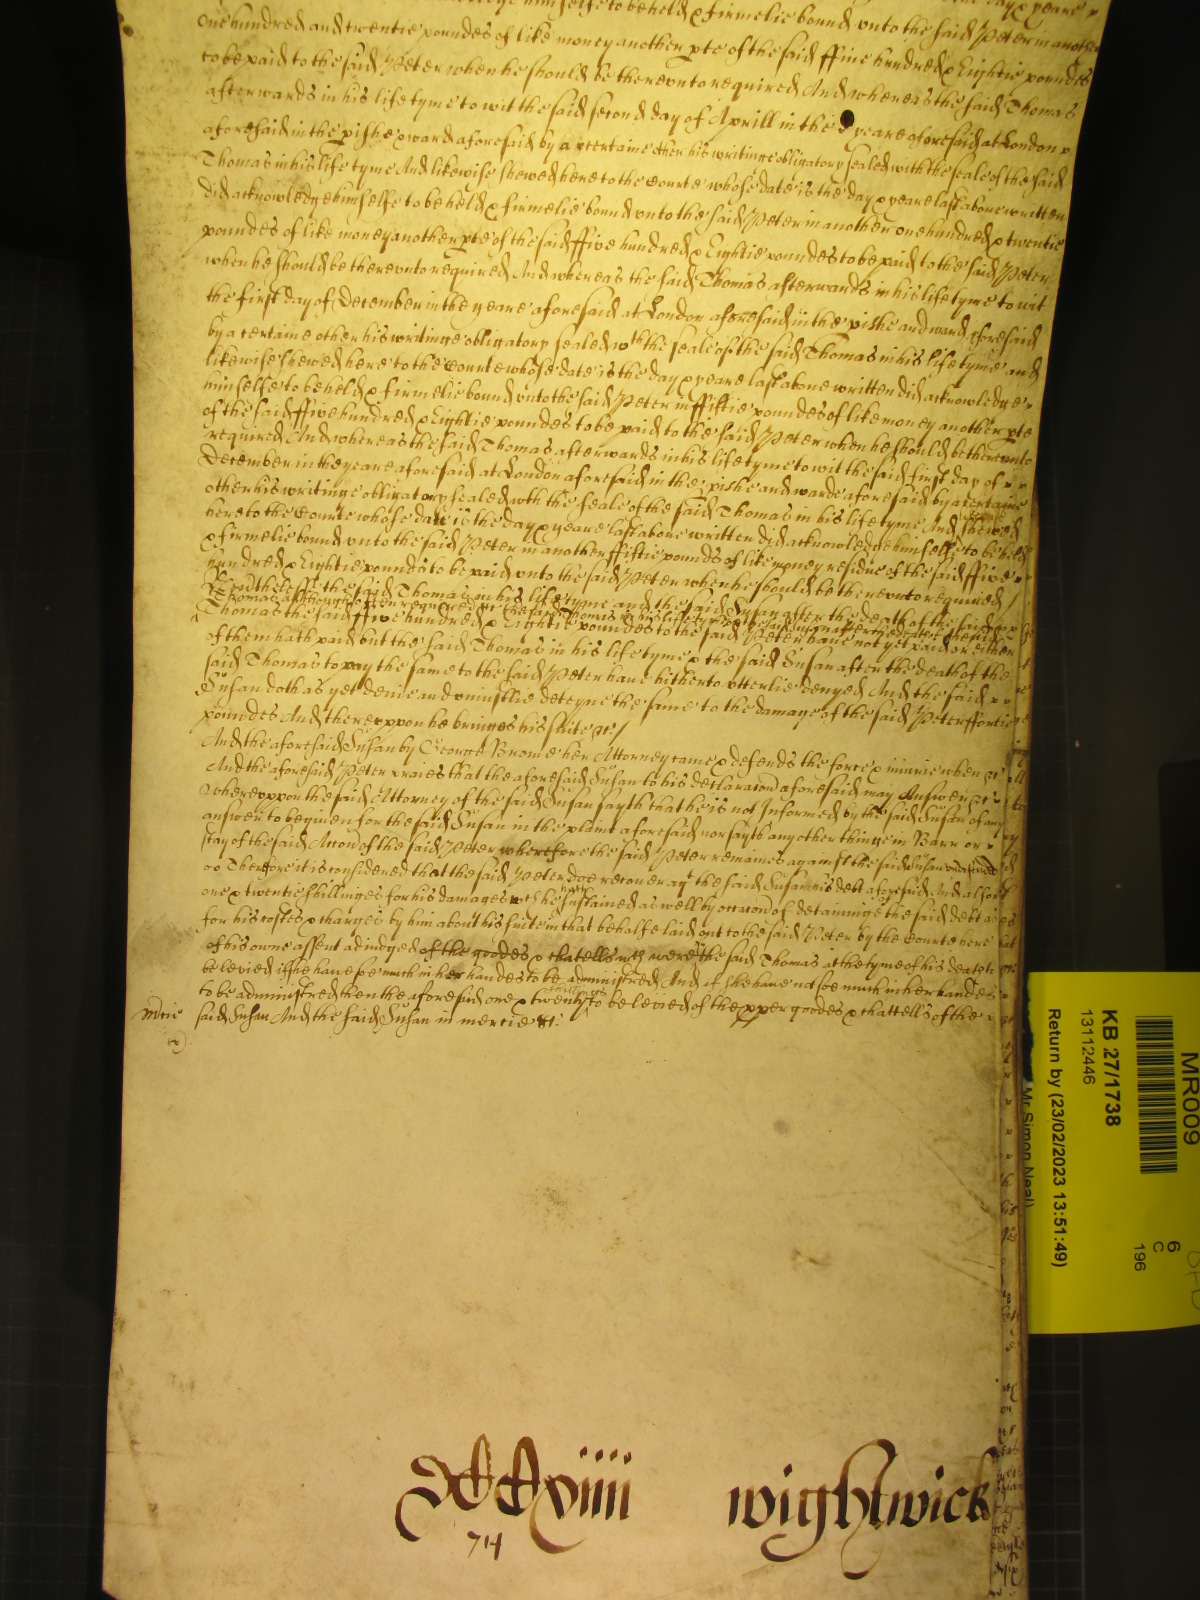 himselfe to be held & firmelie bound vnto the said Peter in another
one hundred and twentie poundes of like money another pte of the said ffive hundred & Eightie poundes
to be paid to the said Peter when he should be therevnto required And whereas the said Thomas
afterwards in his life tyme to wit the said second day of Aprill in the yeare aforesaid at London
aforesaid in the pishe & ward aforesaid by a certaine other his writinge obligatory sealed with the seale of the said
Thomas in his life tyme And likewise shewed here to the Courte whose date is the day & yeare last aboue written
did acknowledge himselfe to be held & firmelie bound vnto the said Peter in another one hundred & twentie
poundes of like money another pte of the said ffive hundred & Eightie poundes to be paid to the said Peter
when he should be therevnto required And whereas the said Thomas afterwards in his life tyme to wit
the first day of December in the yeare aforesaid at London aforesaid in the pishe and ward aforesaid
by a certaine other his writinge obligatory sealed wth the seale of the said Thomas in his life tyme and
likewise shewed here to the Courte whose date is the day & yeare last aboue written did acknowledge
himselfe to be held & firmelie bound vnto the said Peter in ffiftie poundes of like money another pte
of the said ffive hundred & Eightie poundes to be paid to the said Peter when he should be therevnto
required And whereas the said Thomas afterwards in his life tyme to wit the said first day of
December in the yeare aforesaid at London aforesaid in the pishe and warde aforesaid by a certaine
other his writinge obligatory sealed wth the seale of the said Thomas in his life tyme And shewed
here to the Courte whose date is the day & yeare last aboue written did acknowledge himselfe to be held
& firmelie bound vnto the said Peter in another ffiftie pounds of like money residue of the said ffive
hundred & Eightie poundes to be paid vnto the said Peter when he should be therevnto required /
Neverthelesse the said Thomas in his life tyme and the said Susan after the death of the said
Thomas although often required the said Thomas in his life tyme & the said Susan after the death of the said
Thomas the said ffive hundred & Eightie poundes to the said Peter haue not yet paid or either
of them hath paid but the said Thomas in his life tyme & the said Susan after the death of the
said Thomas to pay the same to the said Peter haue hitherto vtterlie denyed And the said
Susan doth as yet denie and vniustlie deteyne the same to the damage of the said Peter ffortie
poundes And therevppon he bringes his suite &c /
And the aforesaid Susan by George Brome her Attorney came & defends the force & iniurie when &c
And the aforesaid Peter praies that the aforesaid Susan to his declaracon aforesaid may Answer &c
wherevppon the said Attorney of the said Susan sayth that he is not Informed by the said Susan of any
answer to be giuen for the said Susan in the plaint aforesaid nor sayth any other thinge in Barr or
stay of the said Accon of the said Peter wherefore the said Peter remaines against the said Susan
Therefore it is considered that the said Peter doe recouer agt the said Susan his debt aforesaid And alsoe
one & twentie shillinges for his damages wch he hath sustained as well by occacon of detaininge the said debt as
for his costes & charges by him about his suite in that behalfe laid out to the said Peter by the Courte here
of his owne assent adiudged of the goodes & chattells wch were the said Thomas at the tyme of his death to
be levied if she haue soe much in her handes to be administred And if she haue not soe much in her handes
to be administred then the aforesaid one & twenty shillinges to be levied of the pper goodes & chattells of the
said Susan And the said Susan in mercie &c
Mcie
CCxiiii wightwick
714
MR009
6
C
196
KB 27/1738
13112446
Return by (23/02/2023 13:51:49)
Mr Simon Neal)